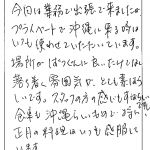 今日は業務で出張で来ましたが
プライベートで沖縄に来る時は
いつも使わせていただいています。
場所がばつぐんに良いだけでなく
落ち着く雰囲気が、とても素晴ら
しいです。スタッフの方の感じもすばらしい
食事も沖縄らしいものと
正月の料理はいつも感服して
います